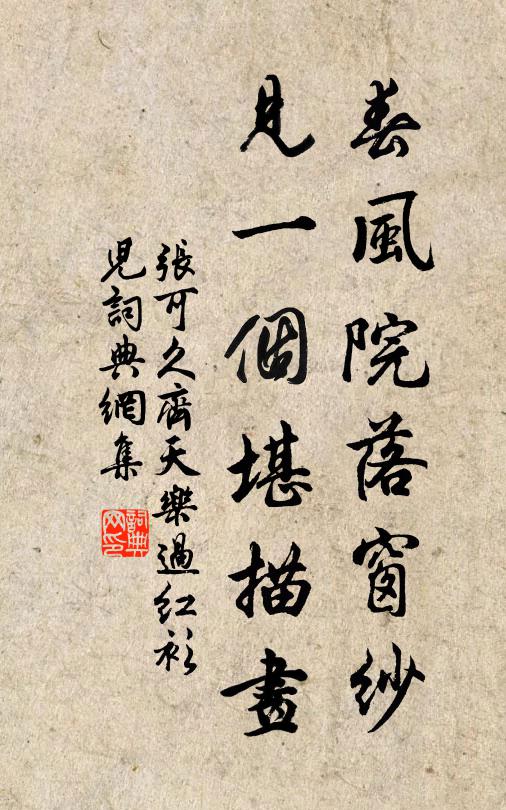 春風院落窗紗
見一個堪描畫
張可久齊天樂過紅衫
兒詞典網集
詞典网印